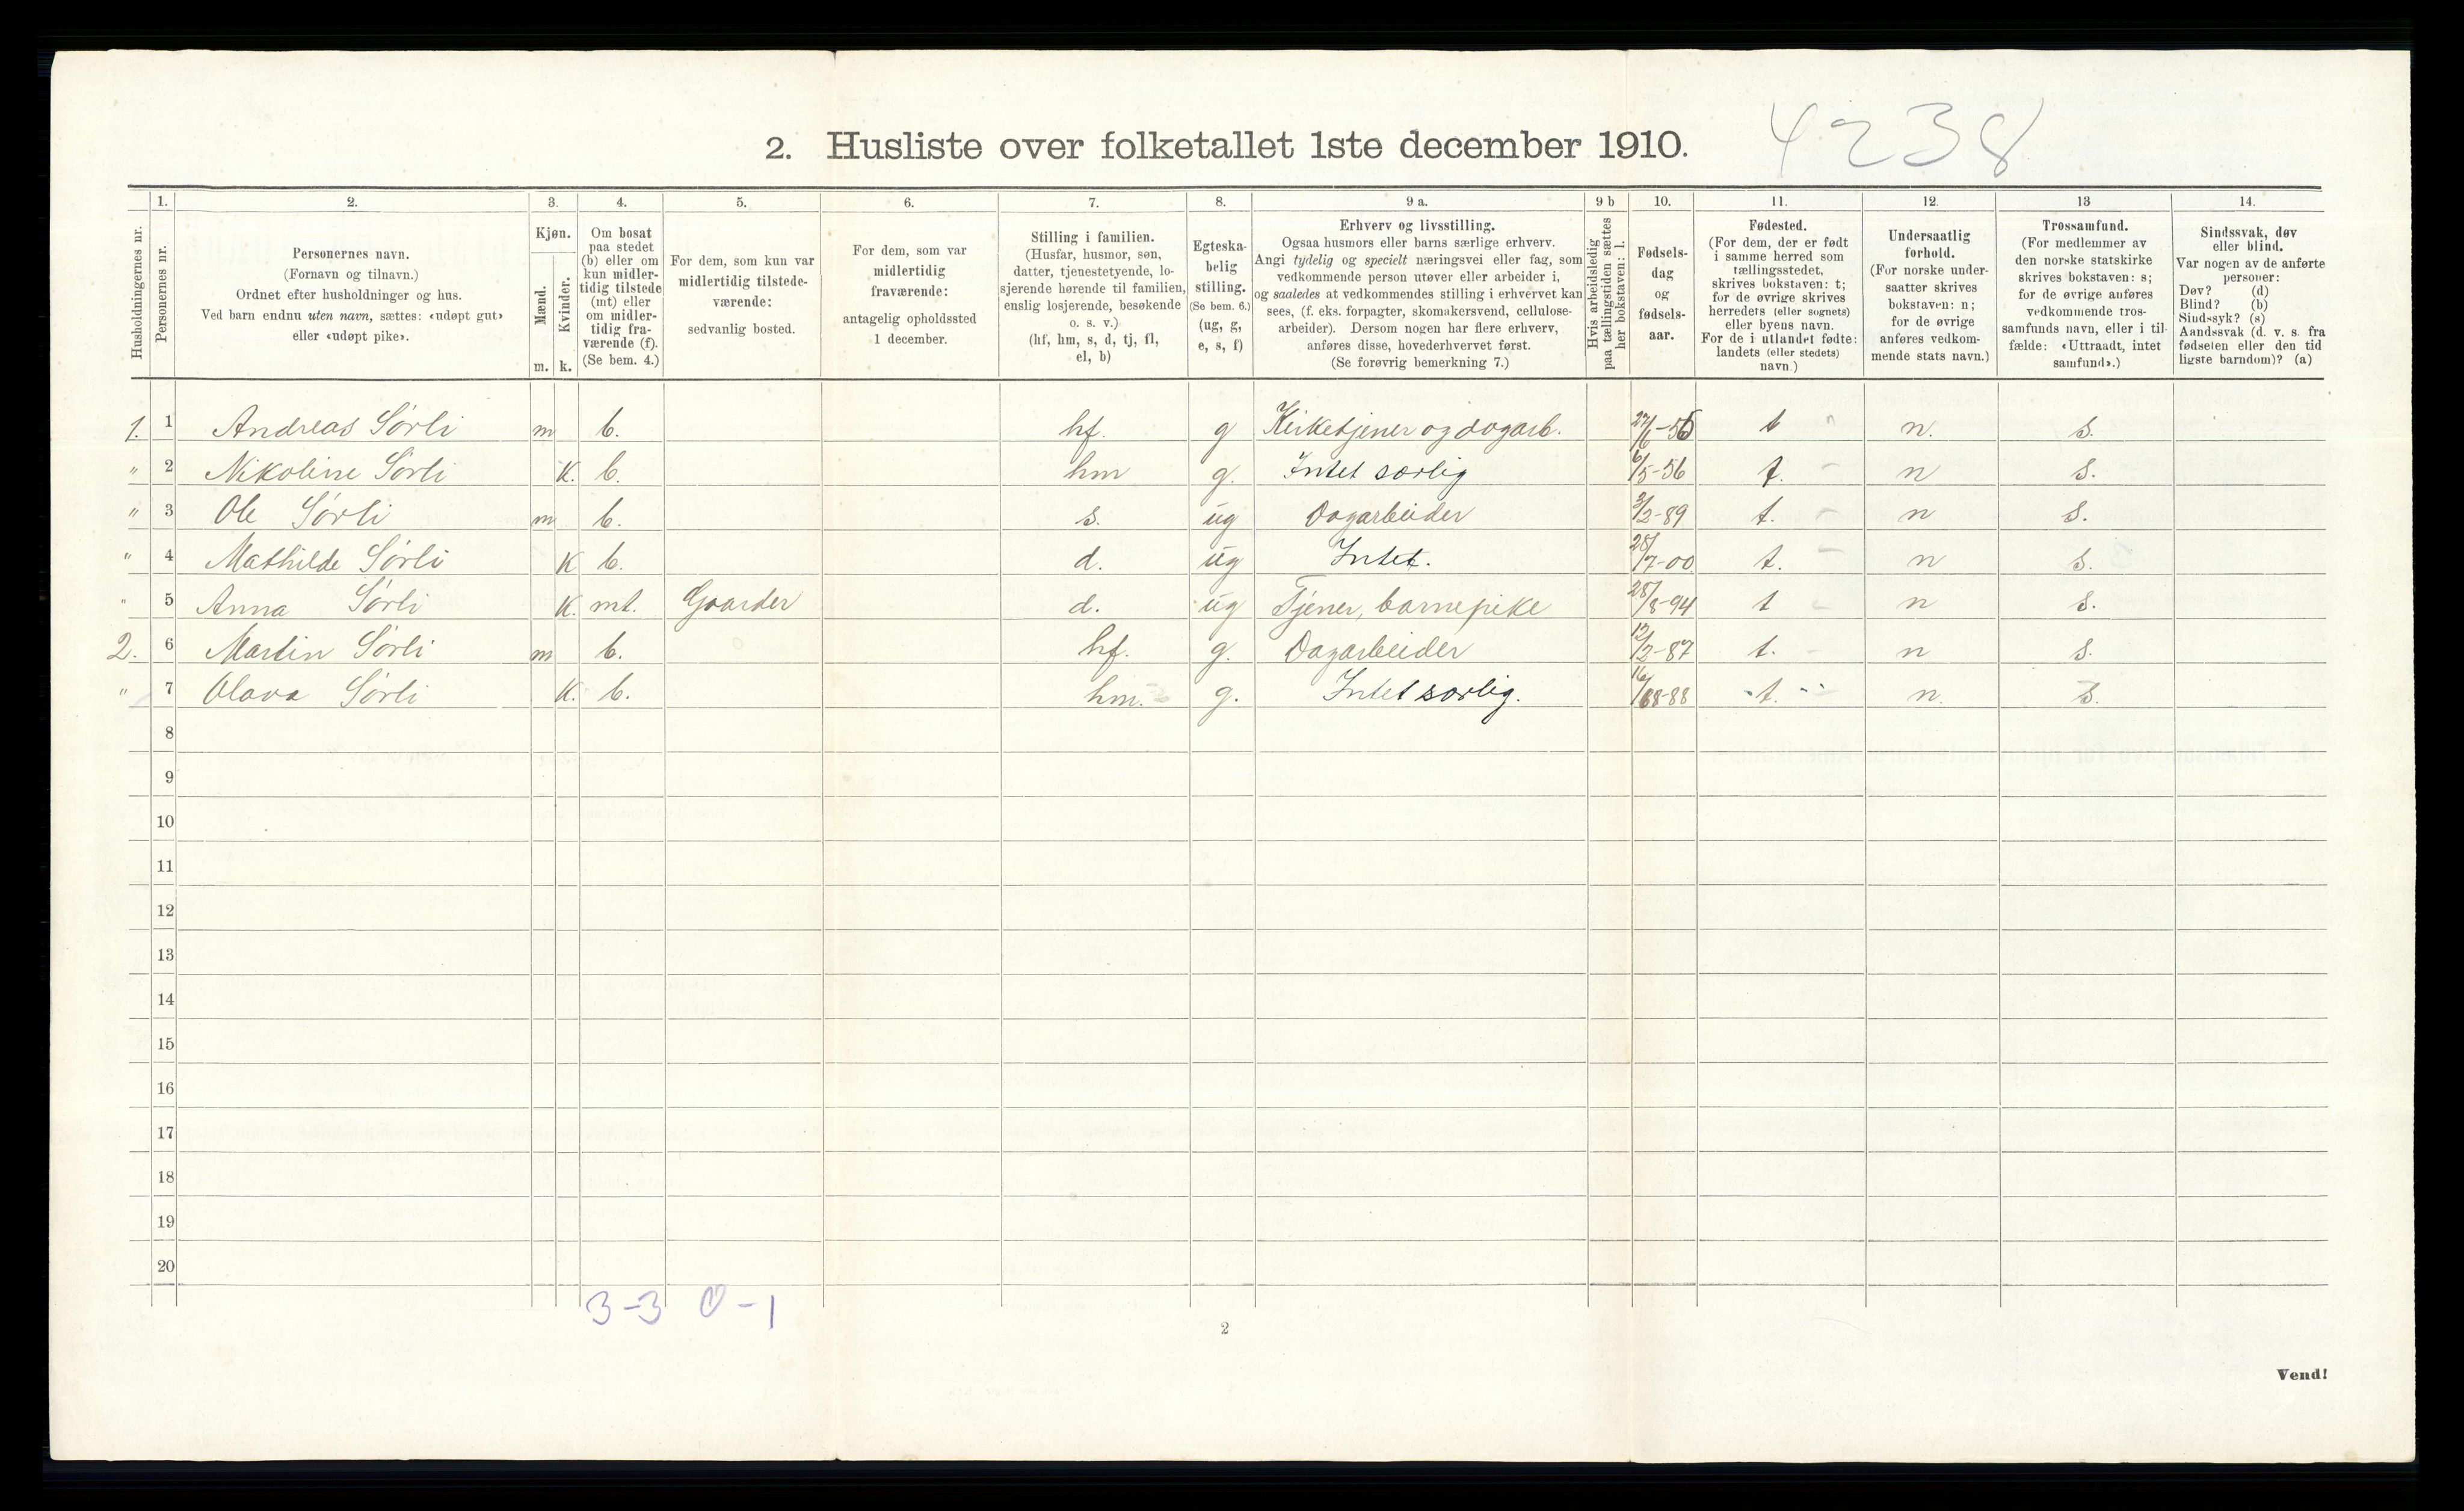 4238
2. Husliste over folketallet 1ste december 1910.
Husholdningernes nr.
1. Personernes nr.
2. Personernes navn.
(Fornavn og tilnavn.)
Ordnet efter husholdninger og hus.
Ved barn endnu uten navn, sættes: «udøpt gut»
eller «udøpt pike».
3. Kjøn.
Mænd. m.
Kvinder. k.
4. Om bosat
paa stedet
(b) eller om
kun midler-
tidig tilstede
(mt) eller
om midler-
tidig fra-
værende (f).
(Se bem. 4.)
5. For dem, som kun var
midlertidig tilstede-
værende:
sedvanlig bosted.
6. For dem, som var
midlertidig
fraværende:
antagelig opholdssted
1 december.
7. Stilling i familien.
(Husfar, husmor, søn,
datter, tjenestetyende, lo-
sjerende hørende til familien,
enslig losjerende, besøkende
o. s. v.)
(hf, hm, s, d, tj, fl,
el, b)
8. Egteska-
belig
stilling.
(Se bem. 6.)
(ug, g,
e, s, f)
9 a. Erhverv og livsstilling.
Ogsaa husmors eller barns særlige erhverv.
Angi tydelig og specielt næringsvei eller fag, som
vedkommende person utøver eller arbeider i,
og saaledes at vedkommendes stilling i erhvervet kan
sees, (f. eks. forpagter, skomakersvend, cellulose-
arbeider). Dersom nogen har flere erhverv,
anføres disse, hovederhvervet først.
(Se forøvrig bemerkning 7.)
9 b Hvis arbeidsledig
paa tællingstiden sættes
her bokstaven: l.
10. Fødsels-
dag
og
fødsels-
aar.
11. Fødested.
(For dem, der er født
i samme herred som
tællingsstedet,
skrives bokstaven: t;
for de øvrige skrives
herredets (eller sognets)
eller byens navn.
For de i utlandet fødte:
landets (eller stedets)
navn.)
12. Undersaatlig
forhold.
(For norske under-
saatter skrives
bokstaven: n;
for de øvrige
anføres vedkom-
mende stats navn.)
13 Trossamfund.
(For medlemmer av
den norske statskirke
skrives bokstaven: s;
for de øvrige anføres
vedkommende tros-
samfunds navn, eller i til-
fælde: «Uttraadt, intet
samfund».)
14. Sindssvak, døv
eller blind.
Var nogen av de anførte
personer:
Døv? (d)
Blind? (b)
Sindssyk? (s)
Aandssvak (d. v. s. fra
fødselen eller den tid
ligste barndom)? (a)
1. 1 Andreas Sørli m b. hf. g Kirketjener og dagarb. t n. s.
" 2 Nikoline Sørli K. b. hm g. Intet særlig 6/5-56 t. n s.
" 3 Ole Sørli m b. s. ug Dagarbeider t. n s.
" 4 Mathilde Sørli K b. d. ug Intet. 28/7-00 t. n s.
" 5 Anna Sørli K. mt. Gaarder d. ug Tjener, barnepike 28/8-94 t n s.
2. 6 Martin Sørli m b. hf. g. Dagarbeider 12/2-87 t. n s.
" 7 Olava Sørli K. b. hm. g. Intet særlig. t. n. s.
8
9
10
11
12
13
14
15
16
17
18
19
20
3-3 0-1
2
Vend!